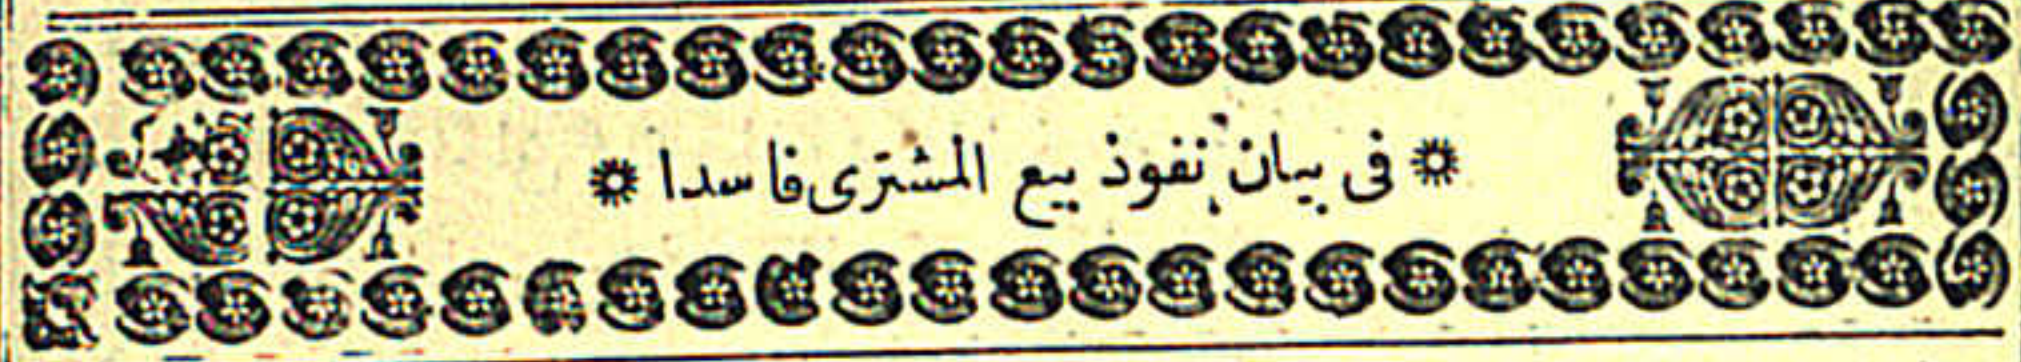 ❊ فى بيان نفوذ بيع المشترى فاسدا ❊